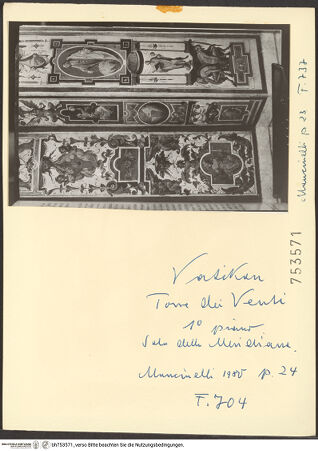 Vatikan
Torre dei Venti
1º piano
Sala della Meridiana
Mancinelli 1980 p. 24
F. 704
Mancinelli p 23 T. 737
753571
bh753571, verso Bitte beachten Sie die Nutzungsbedingungen.